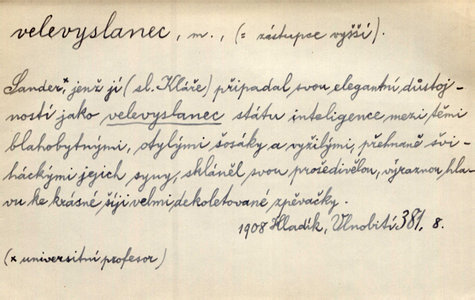 velevyslanec, m., (= zástupce vyšší).
Sander,* jenž jí (sl. Kláře) připadal svou elegantní důstoj-
ností jako velevyslanec státu inteligence mezi těmi
blahobytnými, otylými šosáky a vyžilými, přehnaně švi-
háckými jejich syny, skláněl svou prošedivělou, výraznou hla-
vu ke krásné šíji velmi dekoletované zpěvačky.
1908 Hladík, Vlnobití 381. 8.
(* universitní profesor)